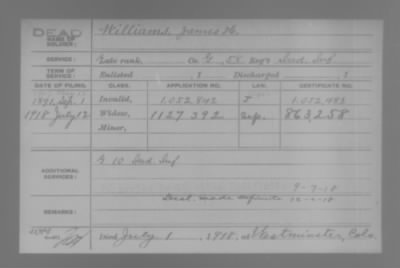 DEAD Williams, James H.
NAME OF SOLDIER:
SERVICE: Late rank, Co. G, 58 Reg't Ind. Inf.
TERM OF SERVICE: Enlisted , 1 Discharged , 1
DATE OF FILING. CLASS. APPLICATION NO. LAW. CERTIFICATE NO.
1891, Sep. 1 Invalid, 1.052.842 1.052.483
1918 July 12 Widow, 1127392 863,258
Minor,
ADDITIONAL SERVICES: G 10 Ind Inf
9-7-18
REMARKS:
Died July 1, 1918, at Westminster, Colo.